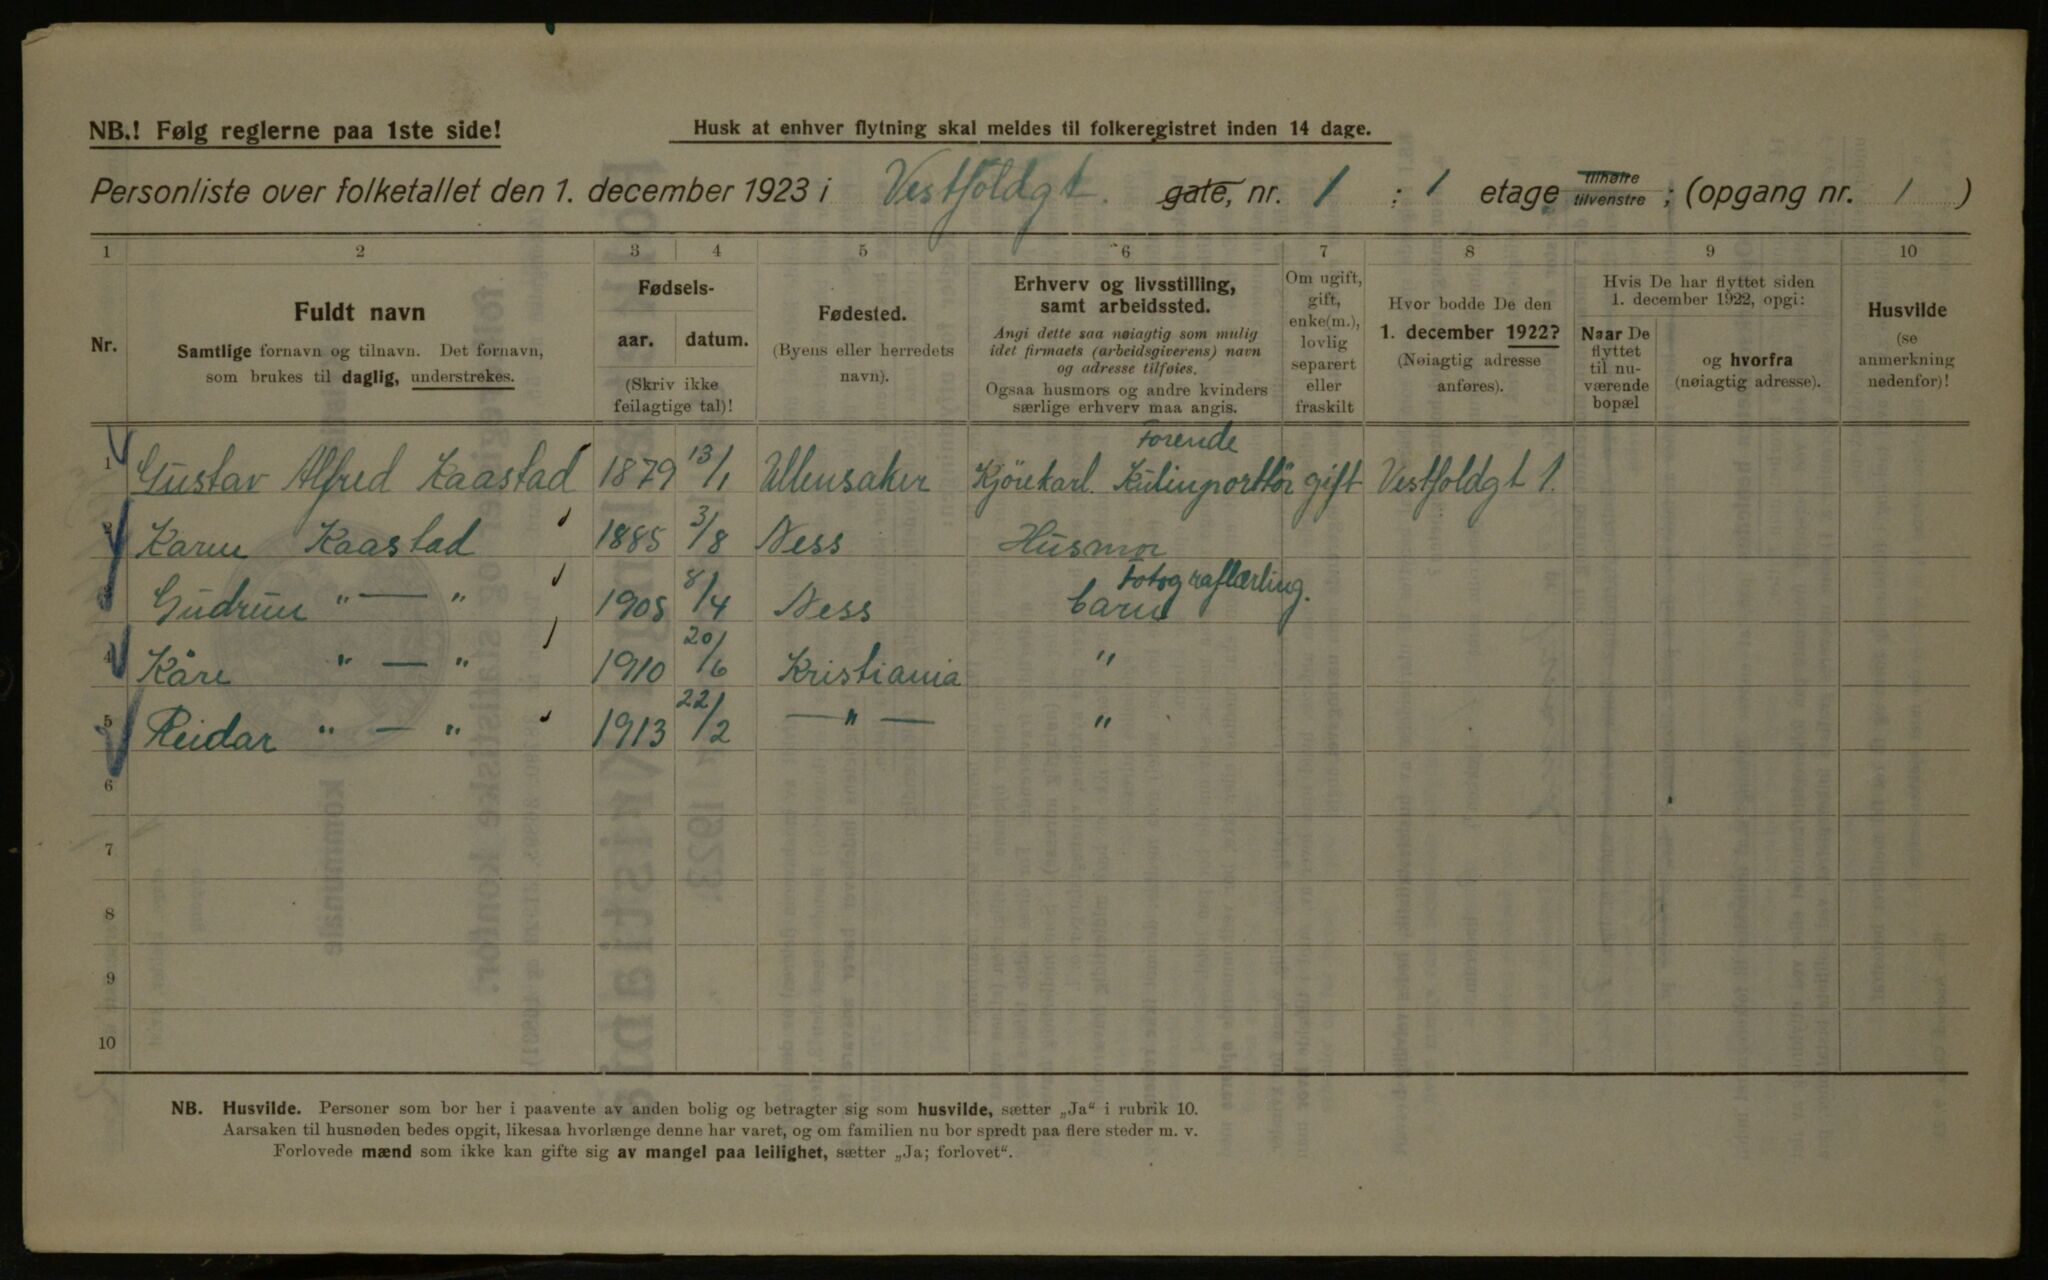 NB.! Følg reglerne paa 1ste side!
Husk at enhver flytning skal meldes til folkeregistret inden 14 dage.
Personliste over folketallet den 1. december 1923 i Vestfoldgt. gate, nr. 1 : 1 etage tilhøire tilvenstre ; (opgang nr. 1 )
1 2 3 4 5 6 7 8 9 10
Nr.
Fuldt navn
Samtlige fornavn og tilnavn. Det fornavn,
som brukes til daglig, understrekes.
Fødsels-
aar. datum.
(Skriv ikke
feilagtige tal)!
Fødested.
(Byens eller herredets
navn).
Erhverv og livsstilling,
samt arbeidssted.
Angi dette saa nøiagtig som mulig
idet firmaets (arbeidsgiverens) navn
og adresse tilføies.
Ogsaa husmors og andre kvinders
særlige erhverv maa angis.
Om ugift,
gift,
enke(m.),
lovlig
separert
eller
fraskilt
Hvor bodde De den
1. december 1922?
(Nøiagtig adresse
anføres).
Hvis De har flyttet siden
1. december 1922, opgi:
Naar De
flyttet
til nu-
værende
bopæl
og hvorfra
(nøiagtig adresse).
Husvilde
(se
anmerkning
nedenfor)!
Forende
1 Gustav Alfred Kaastad 1879 13/1 Ullensaker Kjörekarl. Kulimportör gift Vestfoldgt 1.
2 Karen Kaastad 1885 3/8 Ness Husmor
Fotograflærling.
3 Gudrun " — " 1905 8/4 Ness barn
4 Kåre " — " 1910 20/6 Kristiania "
5 Reidar " — " 1913 22/2 — " — "
6
7
8
9
10
NB. Husvilde. Personer som bor her i paavente av anden bolig og betragter sig som husvilde, sætter „Ja" i rubrik 10.
Aarsaken til husnøden bedes opgit, likesaa hvorlænge denne har varet, og om familien nu bor spredt paa flere steder m. v.
Forlovede mænd som ikke kan gifte sig av mangel paa leilighet, sætter „Ja; forlovet".